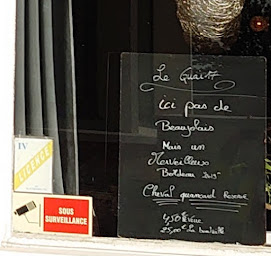 Le Quai 17
ici pas de
Beaujolais
Mais un
Merveilleux
Bordeaux 2015
Cheval quancard Reserve
4,50€ le verre
25,00€ la bouteille
IV
LICENCE
SOUS
SURVEILLANCE